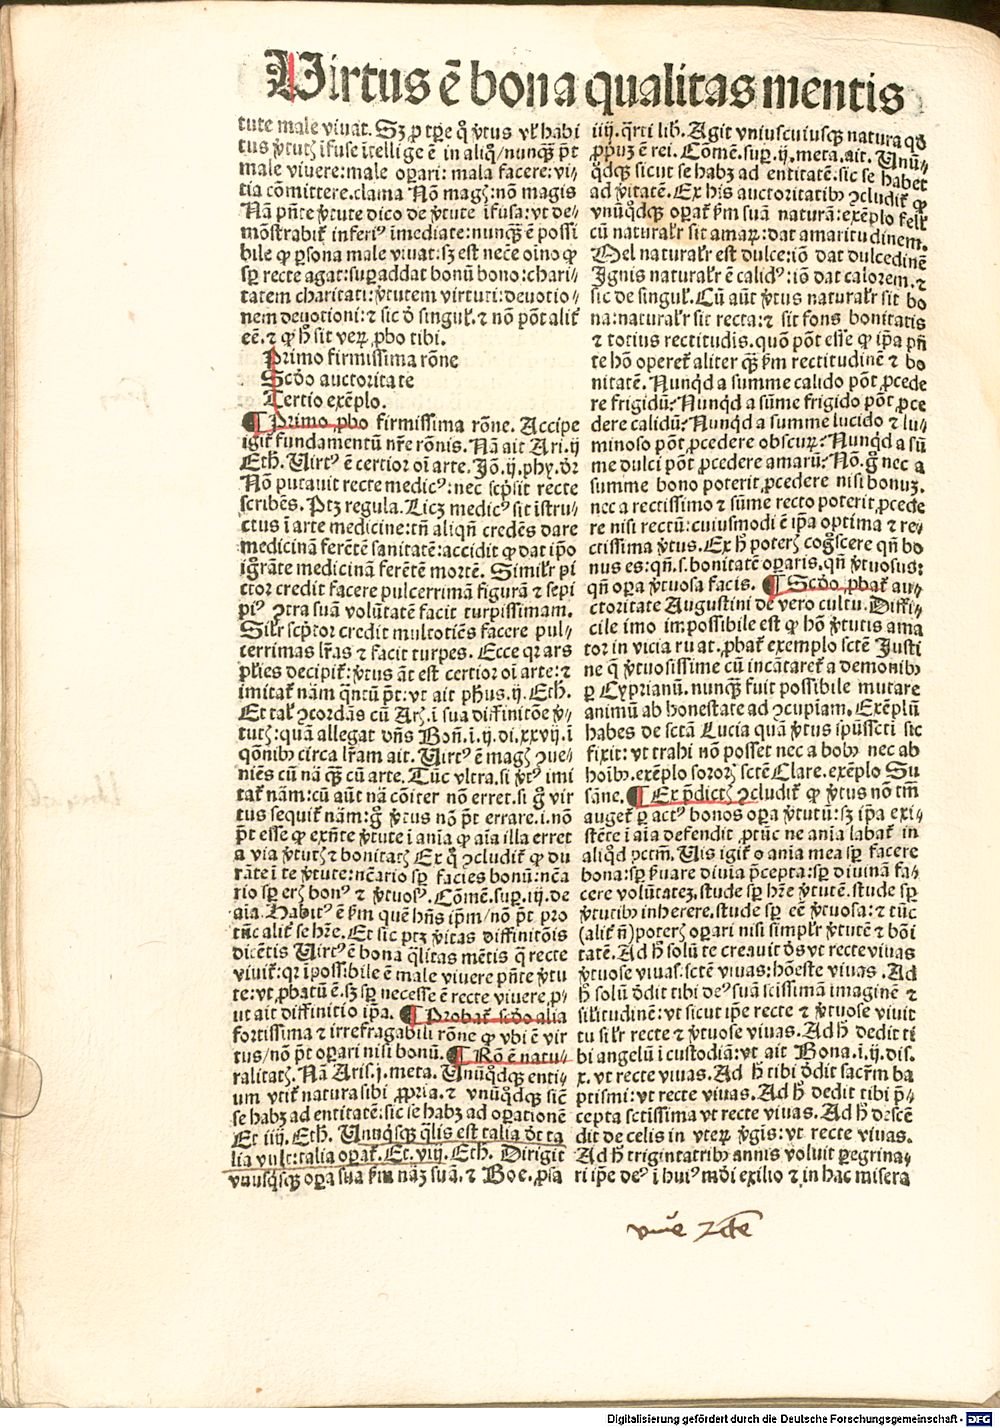 Virtus ē bona qualitas mentis
tute male viuat. Sz p tꝑe ꝙ v̓tus vl̓ habi
tus v̓tutꝭ īfuse ītellige ē in aliq̊/nunqȝ pōt
male viuere: male oꝑari: mala facere: vi⸗
tia cōmittere. clama Nō magꝭ: nō magis
Nā pn̄te v̓tute dico de v̓tute īfusa: vt de⸗
mōstrabit̉ inferiꝰ īmediate: nunqȝ ē possi
bile ꝙ ꝑsona male viuat: sz est nec̄e oīno ꝙ
sꝑ recte agat: suꝑaddat bonū bono: chari⸗
tatem charitati: v̓tutem virtuti: deuotio⸗
nem deuotioni: ⁊ sic d̓ singul̓. ⁊ nō pōt alit̉
eē. ⁊ ꝙ h̓ sit veꝝ ꝓbo tibi.
Primo firmissima rōne
Scd̓o auctoritate
Tertio exēplo.
¶ Primo ꝓbo firmissima rōne. Accipe
igit̉ fundamentū nr̄e rōnis. Nā ait Ari. ij
Eth. Virtꝰ ē certior oī arte. Jō. ij. phy. dr̄
Nō putauit recte medicꝰ: nec scp̄sit recte
scribēs. Ptꝫ regula. Licꝫ medicꝰ sit īstru⸗
ctus ī arte medicine: tn̄ aliqn̄ credēs dare
medicinā ferētē sanitatē: accidit ꝙ dat ip̄o
igrāte medicinā ferētē mortē. Similr̄ pi
ctor credit facere pulcerrimā figurā ⁊ sepi
piꝰ ꝯtra suā volūtatē facit turpissimam.
Silr̄ scp̄tor credit multotiēs facere pul⸗
cerrimas lr̄as ⁊ facit turpes. Ecce qr ars
pl̓ies decipit̉: v̓tus āt est certior oī arte: ⁊
imitat̉ nām qntū pōt: vt ait ph̄us. ij. Eth.
Et tal̓ ꝯcordās cū Arꝭ. ī sua diffinitōe v̓⸗
tutꝭ: quā allegat dn̄s Bon̄. ī. ij. di. xxvij. ī
qōnibꝰ circa lr̄am ait. Virtꝰ ē magꝭ ꝯue⸗
niēs cū nā qȝ cū arte. Tūc vltra. si v̓tꝰ imi
tat̉ nām: cū aūt nā cōiter nō erret. si g̊ vir
tus sequit̉ nām: g̊ v̓tus nō pōt errare. i. nō
pōt esse ꝙ exn̄te v̓tute ī anīa ꝙ aīa illa erret
a via v̓tutꝭ ⁊ bonitatꝭ Ex q̊ ꝯcludit̉ ꝙ du
rāte ī te v̓tute: nc̄ario sꝑ facies bonū: nc̄a
rio sꝑ erꝭ bonꝰ ⁊ v̓tuosꝰ. Cōmē. suꝑ. iij. de
aīa. Habitꝰ ē ẜm quē hn̄s ip̄m/nō pōt pro
tūc alit̉ se hr̄e. Et sic ptꝫ v̓itas diffinitōis
dicētis Virtꝰ ē bona q̄litas mētis q̄ recte
viuit̉: qr īpossibile ē male viuere pn̄te v̓tu
te: vt ꝓbatū ē. sz sꝑ necesse ē recte viuere. ꝓ⸗
ut ait diffinitio ip̄a. ¶ Probat̉ scd̓o alia
fortissima ⁊ irrefragabili rōne ꝙ vbi ē vir
tus/nō pōt oꝑari nisi bonū. ¶ Rō ē natu⸗
ralitatꝭ. Nā Aris. j. meta. Unūqd̓qȝ enti⸗
um vtit̉ natura sibi ꝓpria. ⁊ vnūqd̓qȝ sic̄
se habꝫ ad entitatē: sic se habꝫ ad oꝑationē
Et iij. Eth. Unusqsqȝ q̄lis est talia dr̄ ta
lia vult: talia oꝑat̉. Et. viij. Eth. Dirigit
vnusqsqȝ oꝑa sua ẜm nāꝫ suā. ⁊ Boe. ꝓsa
iiij. q̄rti lib̓. Agit vniuscuiusqȝ natura qd̓
ꝓpuꝫ ē rei. Cōmē. suꝑ. ij. meta. ait. Unū⸗
qd̓qȝ sicut se habꝫ ad entitatē. sic se habet
ad v̓itatē. Ex his auctoritatibꝰ ꝯcludit̉ ꝙ
vnūqd̓qȝ oꝑat̉ ẜm suā naturā: exēplo fell̓
cū naturalr̄ sit amaꝝ: dat amaritudinem.
Mel naturalr̄ est dulce: iō dat dulcedinē
Jgnis naturalr̄ ē calidꝰ: iō dat calorem. ⁊
sic de singul̓. Cū aūt v̓tus naturalr̄ sit bo
na: naturalr̄ sit recta: ⁊ sit fons bonitatis
⁊ totius rectitudis. quō pōt esse ꝙ ip̄a pn̄
te hō operet̉ aliter qȝ ẜm rectitudinē ⁊ bo
nitatē. Nunqd̓ a summe calido pōt ꝓcede
re frigidū? Nunqd̓ a sūme frigido pōt ꝓce
dere calidū? Nunqd̓ a summe lucido ⁊ lu⸗
minoso pōt ꝓcedere obscuꝝ? Nunqd̓ a sū
me dulci pōt ꝓcedere amarū? Nō. g̊ nec a
summe bono poterit ꝓcedere nisi bonuꝫ.
nec a rectissimo ⁊ sūme recto poterit ꝓcede
re nisi rectū: cuiusmodi ē ip̄a optima ⁊ re⸗
ctissima v̓tus. Ex h̓ poterꝭ cogscere qn̄ bo
nus es: qn̄. s. bonitatē oꝑaris. qn̄ v̓tuosus:
qn̄ oꝑa v̓tuosa facis. ¶ Scd̓o ꝓbat̉ au⸗
ctoritate Augustini de vero cultu. Diffi⸗
cile imo impossibile est ꝙ hō v̓tutis ama
tor in vicia ruat. ꝓbat̉ exemplo sct̄e Justi
ne q̄ v̓tuosissime cū incātaret̉ a demonibꝰ
ꝑ Cyprianū. nunqȝ fuit possibile mutare
animū ab honestate ad ꝯcupīam. Exēplū
habes de sctā Lucia quā v̓tus spūsscti sic
fixit: vt trahi nō posset nec a bobꝰ nec ab
hoībꝰ. exēplo sororꝭ scte Clare. exēplo Su
sāne. ¶ Ex p̄dictꝭ ꝯcludit̉ ꝙ v̓tus nō tm̄
auget̉ ꝑ actꝰ bonos oꝑa v̓tutū: sz ip̄a exi⸗
stēte ī aīa defendit ꝓtūc ne anīa labat̉ in
aliqd̓ pctm̄. Vis igit̉ o anīa mea sꝑ facere
bona: sꝑ ẜuare diuīa p̄cepta: sꝑ diuinā fa⸗
cere volūtateꝫ. stude sꝑ hr̄e v̓tutē. stude sꝑ
v̓tutibꝰ inherere. stude sꝑ eē v̓tuosa: ⁊ tūc
(alit̉ n̄) poterꝭ oꝑari nisi simplr̄ v̓tutē ⁊ bōi
tatē. Ad h̓ solū te creauit d̓s vt recte viuas
v̓tuose viuas. sctē viuas: hōeste viuas. Ad
h̓ solū d̓dit tibi deꝰ suā scissimā imaginē ⁊
silitudinē: vt sicut ip̄e recte ⁊ v̓tuose viuit
tu silr̄ recte ⁊ v̓tuose viuas. Ad h̓ dedit ti
bi angelū ī custodiā: vt ait Bona. ī. ij. dis.
x. vt recte viuas. Ad h̓ tibi d̓dit sacr̄m ba
ptismi: vt recte viuas. Ad h̓ dedit tibi p̄⸗
cepta sctissima vt recte viuas. Ad h̓ descē
dit de celis in vteꝝ v̓gis: vt recte viuas.
Ad h̓ trigintatribꝰ annis voluit ꝑegrina⸗
ri ip̄e deꝰ ī huiꝰ mōi exilio ⁊ in hac misera
Digitalisierung gefördert durch die Deutsche Forschungsgemeinschaft - DFG